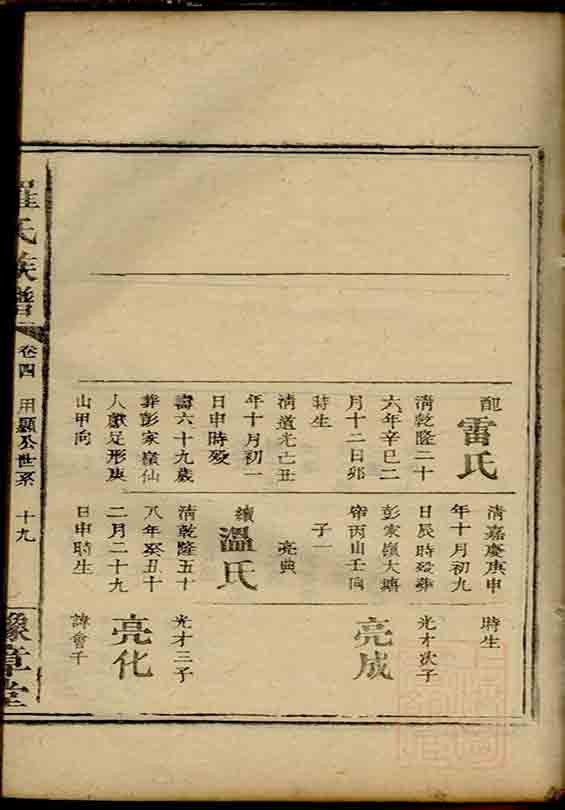 配
雷氏
清乾隆二十
六年辛巳二
月十二日卯
時生
清道光己丑
年十月初一
日申時歿
壽六十九歲
葬彭家嶺仙
人獻足形庚
山甲向
清嘉慶庚申
年十月初九
日辰時歿葬
彭家嶺大塘
丙山壬向
子一
亮典
續
溫氏
清乾隆五十
八年癸丑十
二月二十九
日申時生
時生
光才次子
亮成
光才三子
亮化
諱會千
羅氏族譜
卷四
用顯公世系
十九
豫章堂